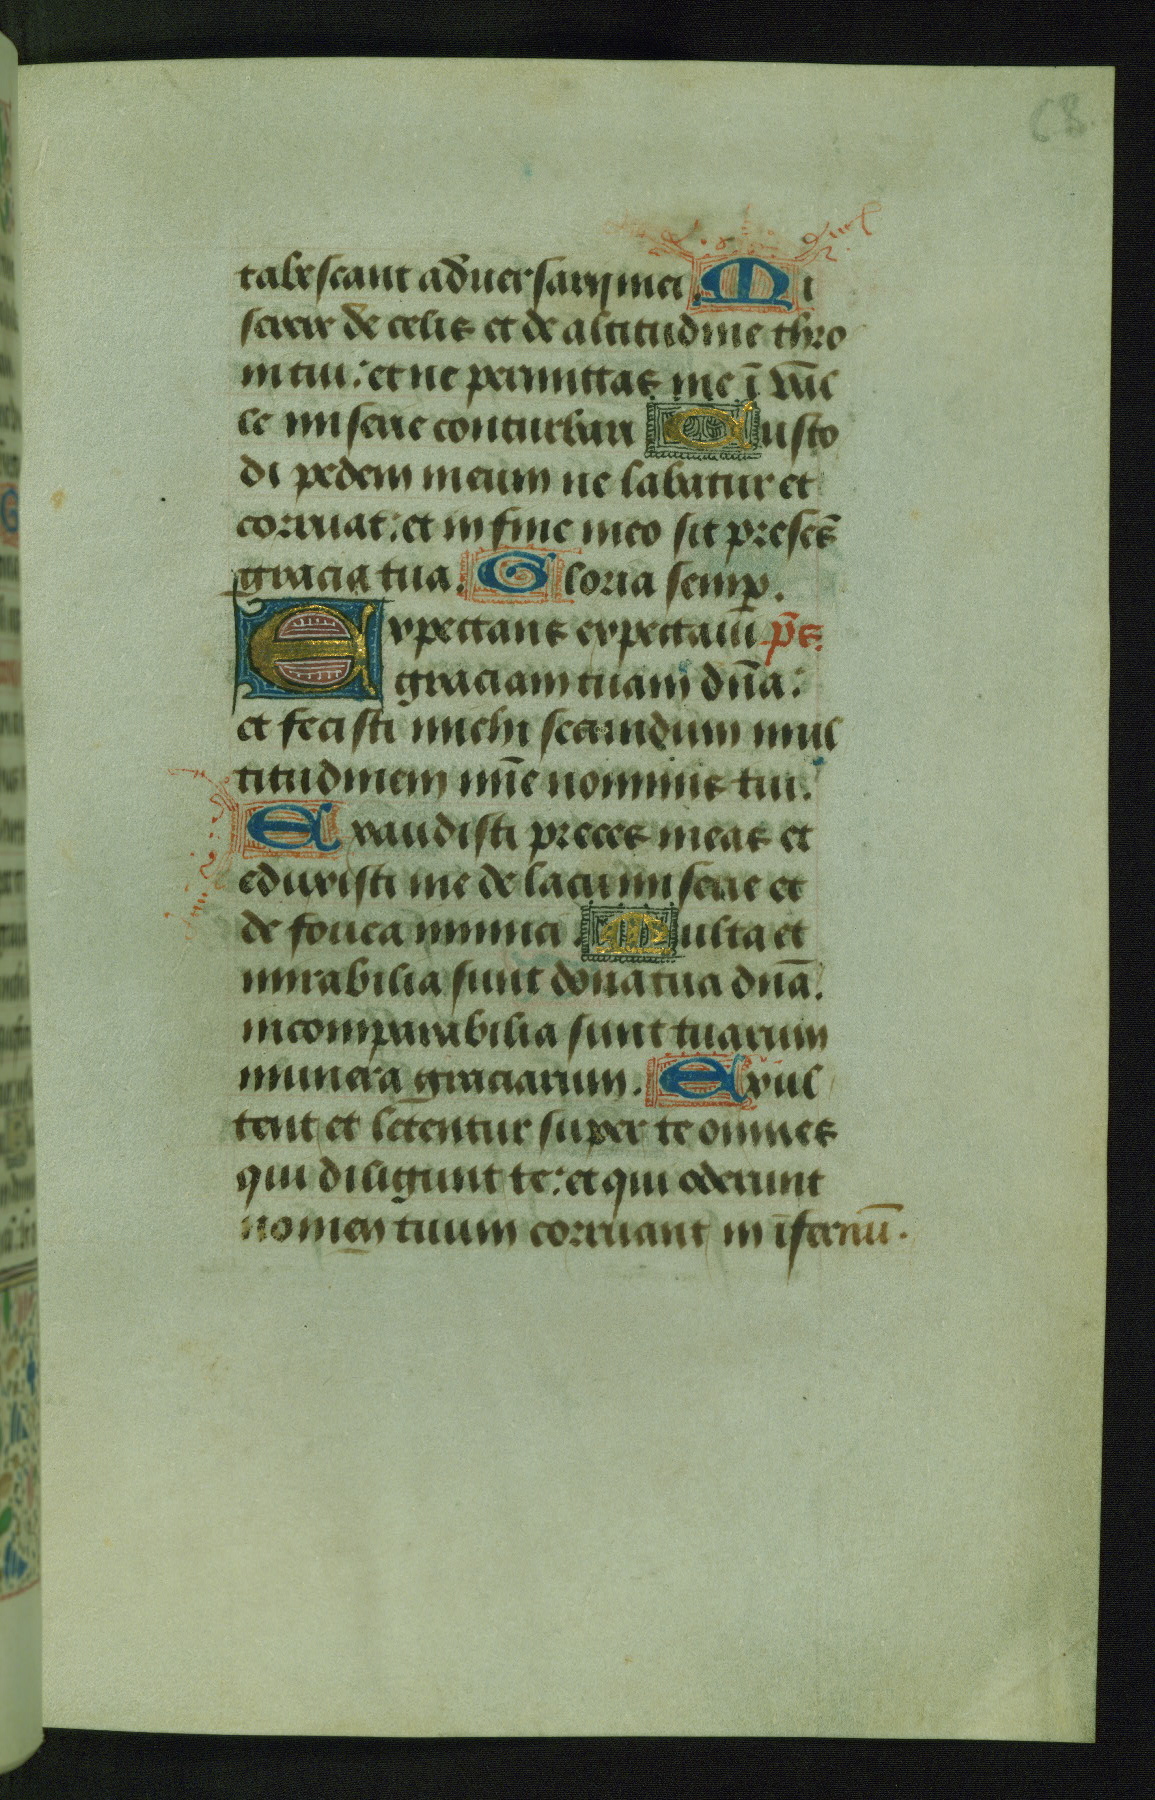 68.
tabescant aduersarij mei. Mi
serere de celis et de altitudine thro
ni tui: et ne permittas me ī vall
le miserie conturbari Custo
di pedem meum ne labatur et
corruat: et in fine meo sit presēs
gracia tua. Gloria semp.
Expectans expectaui p̄s.
graciam tuam dn̄a:
et fecisti michi secundum mul
titudinem mīe nominis tui.
Exaudisti preces meas et
eduxisti me de lacu miserie et
de fouea inimici. Multa et
mirabilia sunt dona tua dn̄a:
incomparabilia sunt tuarum
munera graciarum. Exul
tent et letentur super te omnes
qui diligunt te: et qui oderunt
nomen tuum corruant in īfernū.